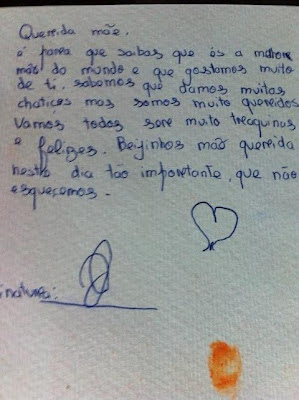 Querrida mãe,
é parra que saibas que és a malhorre
mãe do mundo e que gostamos muito
de ti, sabemos que damos muitas
chatices mas somos muito querridos
Vamos todos serre muito trraquinas
e felizes. Beijinhos mãe querrida
neste dia tão imporrtante, que não
esquecemos.
inaturra: